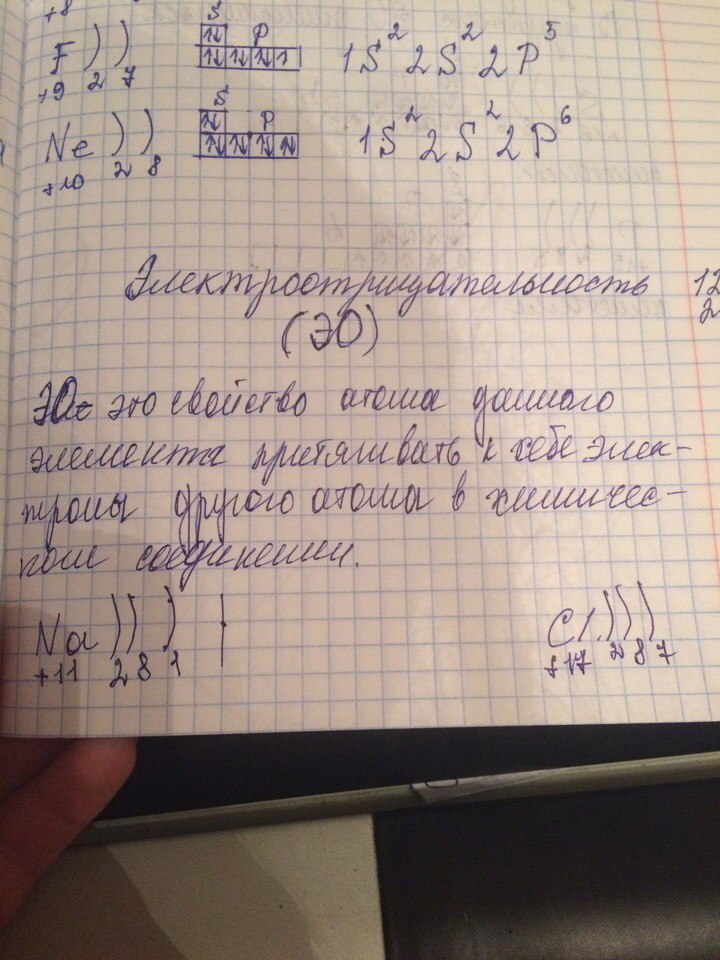 +8
F ) ) S P 1S² 2S² 2P⁵
+9 2 7
Ne ) ) S P 1S² 2S² 2P⁶
+10 2 8
Электроотрицательность
12
(ЭО)
2
ЭО- это свойство атома данного
элемента притягивать к себе элек-
троны другого атома в химичес-
ком соединении.
Na ) ) ) Cl ) ) )
+11 2 8 1 +17 2 8 7